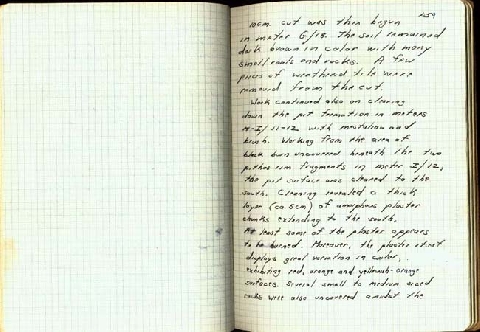 10cm cut was then begun
in meter G/18. The soil remained
dark brown in color with many
small roots and rocks. A few
pieces of weathered tile were
removed from the cut.
Work continued also on clearing
down the pit formation in meters
I/11-12 with mattock and
brush. Working from the area of
black burn uncovered beneath the two
pithos rim fragments in meter I/12,
the pit surface was cleared to the
south. Cleaning revealed a thick
layer (ca 5cm) of amorphous plaster
chunks extending to the south.
At least some of the plaster appears
to be burned. Moreover, the plaster itself
displays great variation in color,
exhibiting red, orange and yellowish-orange
surfaces. Several small to medium sized
rocks were also uncovered amidst the